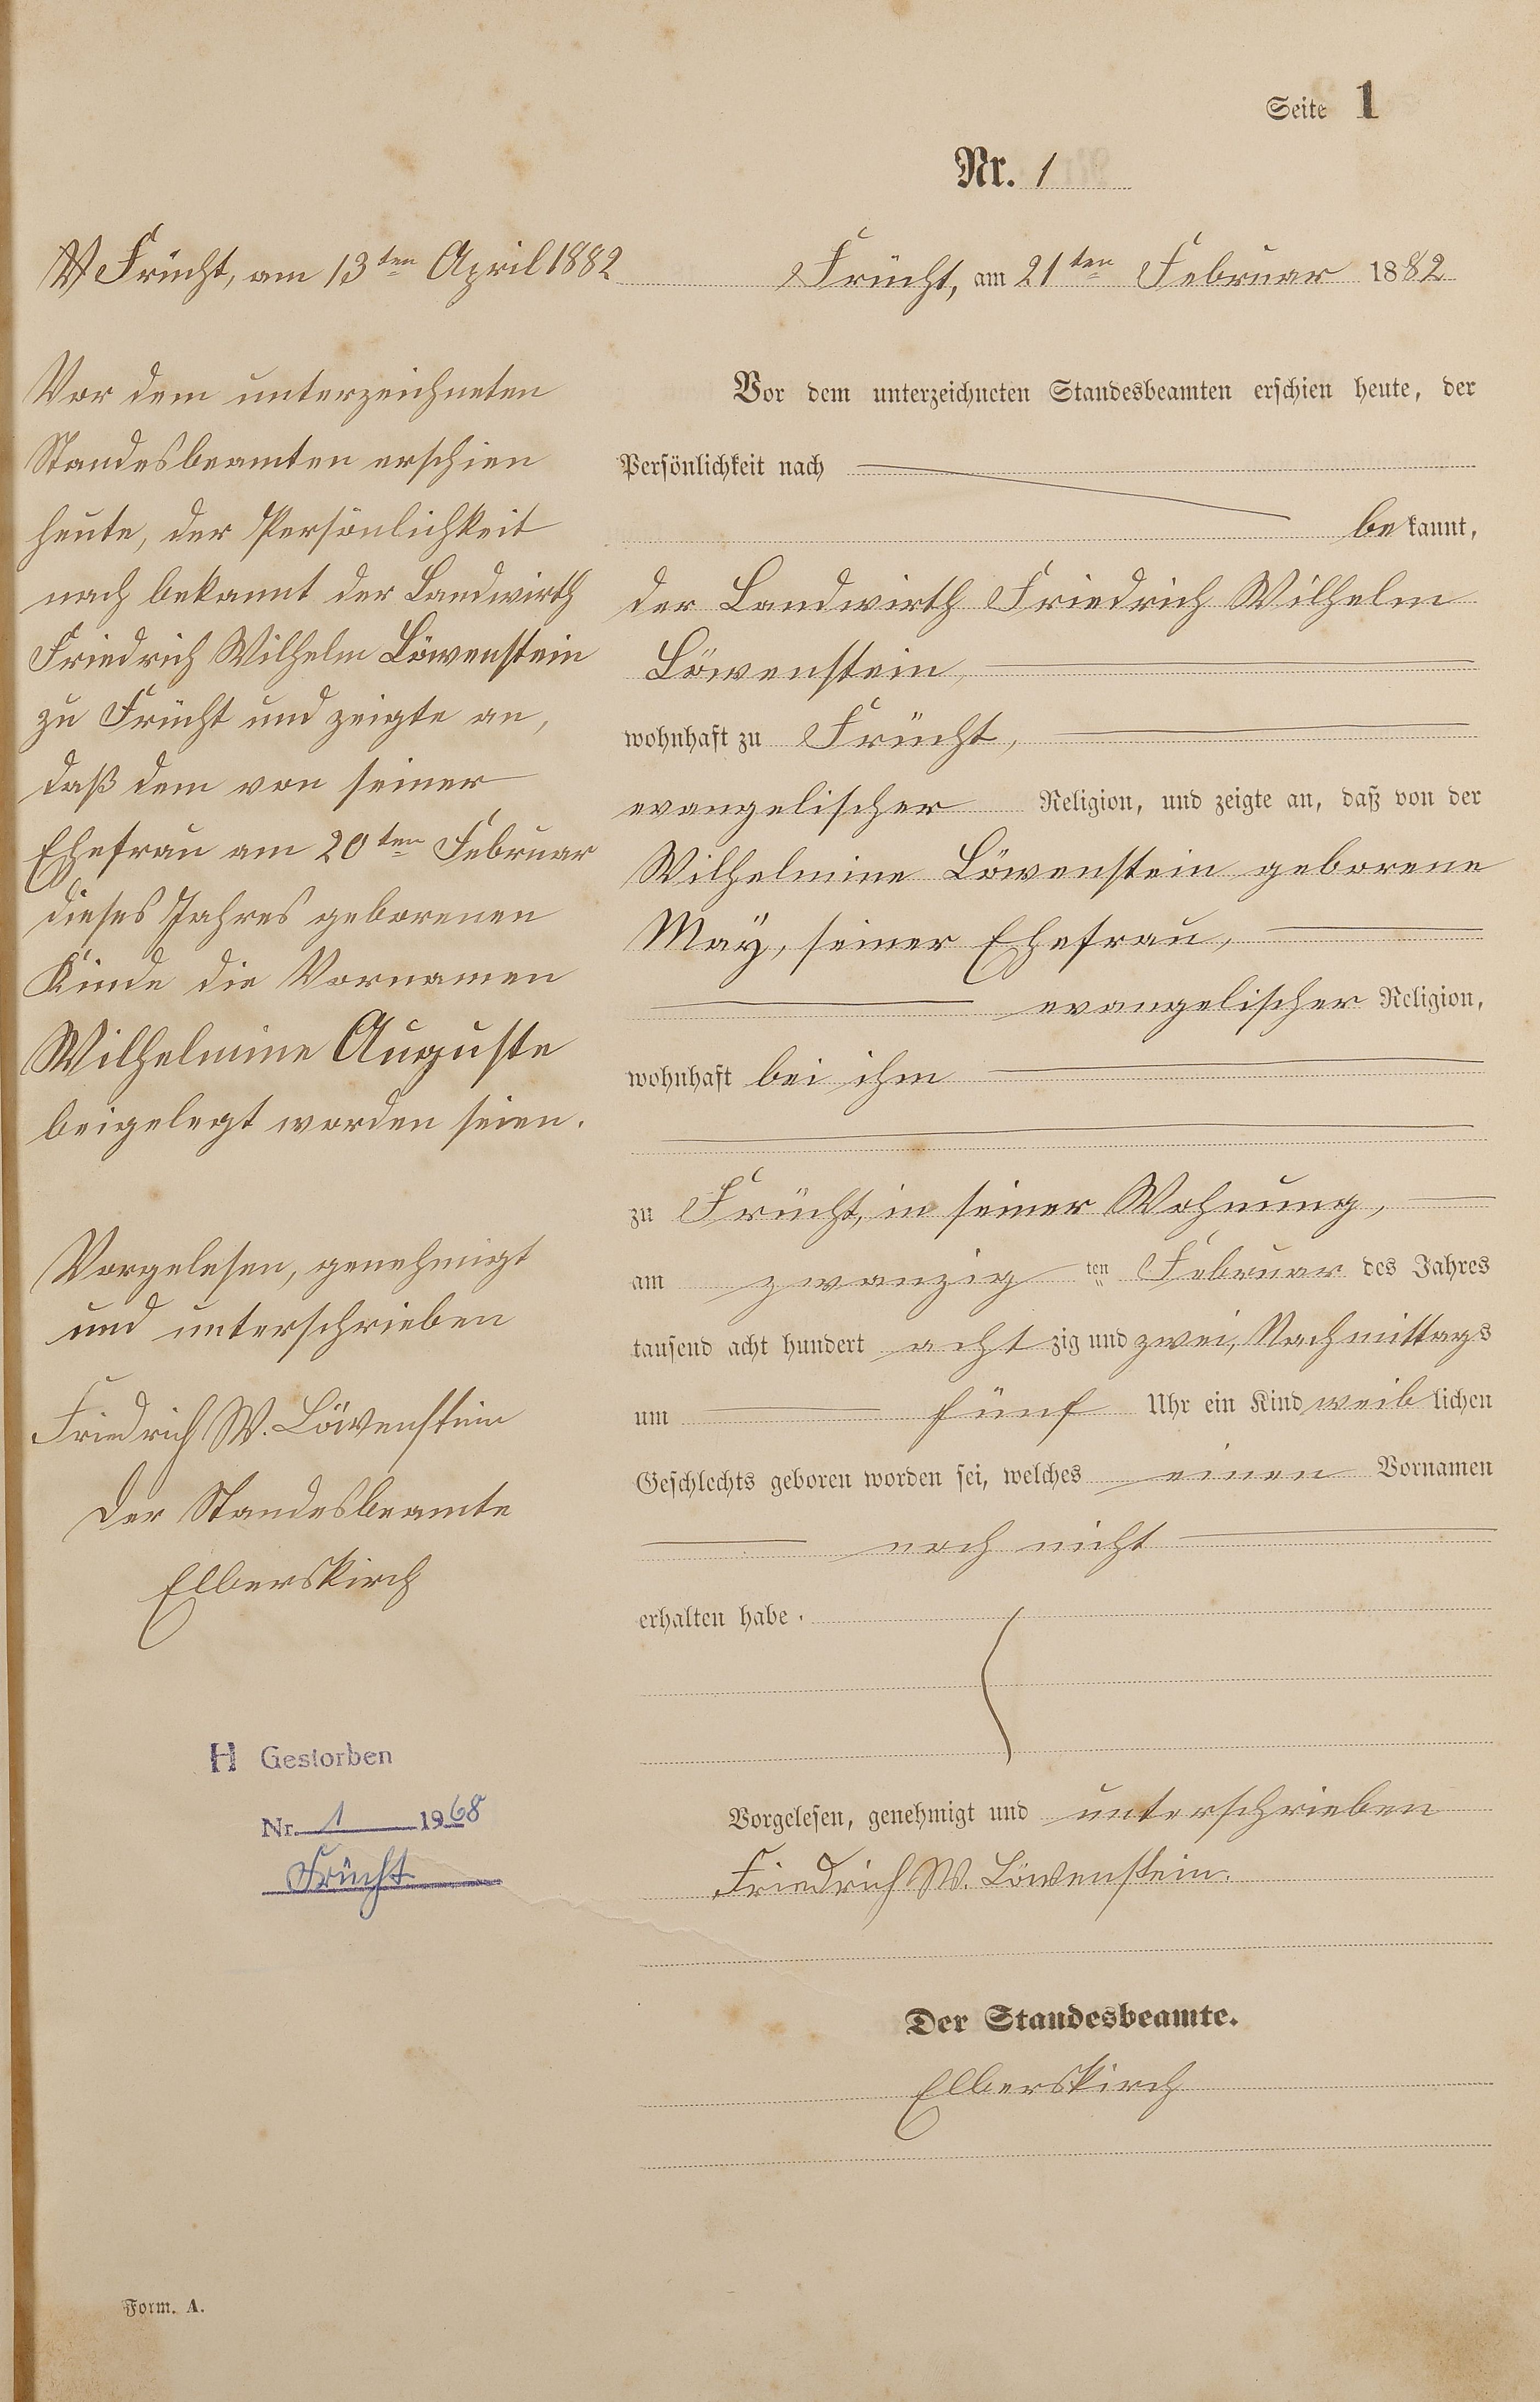 Seite 1
Nr. 1
Frücht, am 13ten April 1882
Vor dem unterzeichneten
Standesbeamten erschien
heute, der Persönlichkeit
nach bekannt der Landwirth
Friedrich Wilhelm Löwenstein
zu Frücht und zeigte an,
daß dem von seiner
Ehefrau am 20ten Februar
dieses Jahres geborenen
Kinde die Vornamen
Wilhelmine Auguste
beigelegt worden seien.
Vorgelesen, genehmigt
und unterschrieben
Friedrich W. Löwenstein
Der Standesbeamte
Elberskirch
H Gestorben
Nr. 1 1968
Frücht
Form. A.
Frücht, am 21ten Februar 1882
Vor dem unterzeichneten Standesbeamten erschien heute, der
Persönlichkeit nach
bekannt,
der Landwirth Friedrich Wilhelm
Löwenstein,
wohnhaft zu Frücht,
evangelischer Religion, und zeigte an, daß von der
Wilhelmine Löwenstein geborene
Maÿ, seiner Ehefrau,
evangelischer Religion,
wohnhaft bei ihm
zu Frücht, in seiner Wohnung,
am zwanzig ten Februar des Jahres
tausend acht hundert achtzig und zwei, Nachmittags
um fünf Uhr ein Kind weiblichen
Geschlechts geboren worden sei, welches einen Vornamen
noch nicht
erhalten habe.
Vorgelesen, genehmigt und unterschrieben
Friedrich W. Löwenstein.
Der Standesbeamte.
Elberskirch